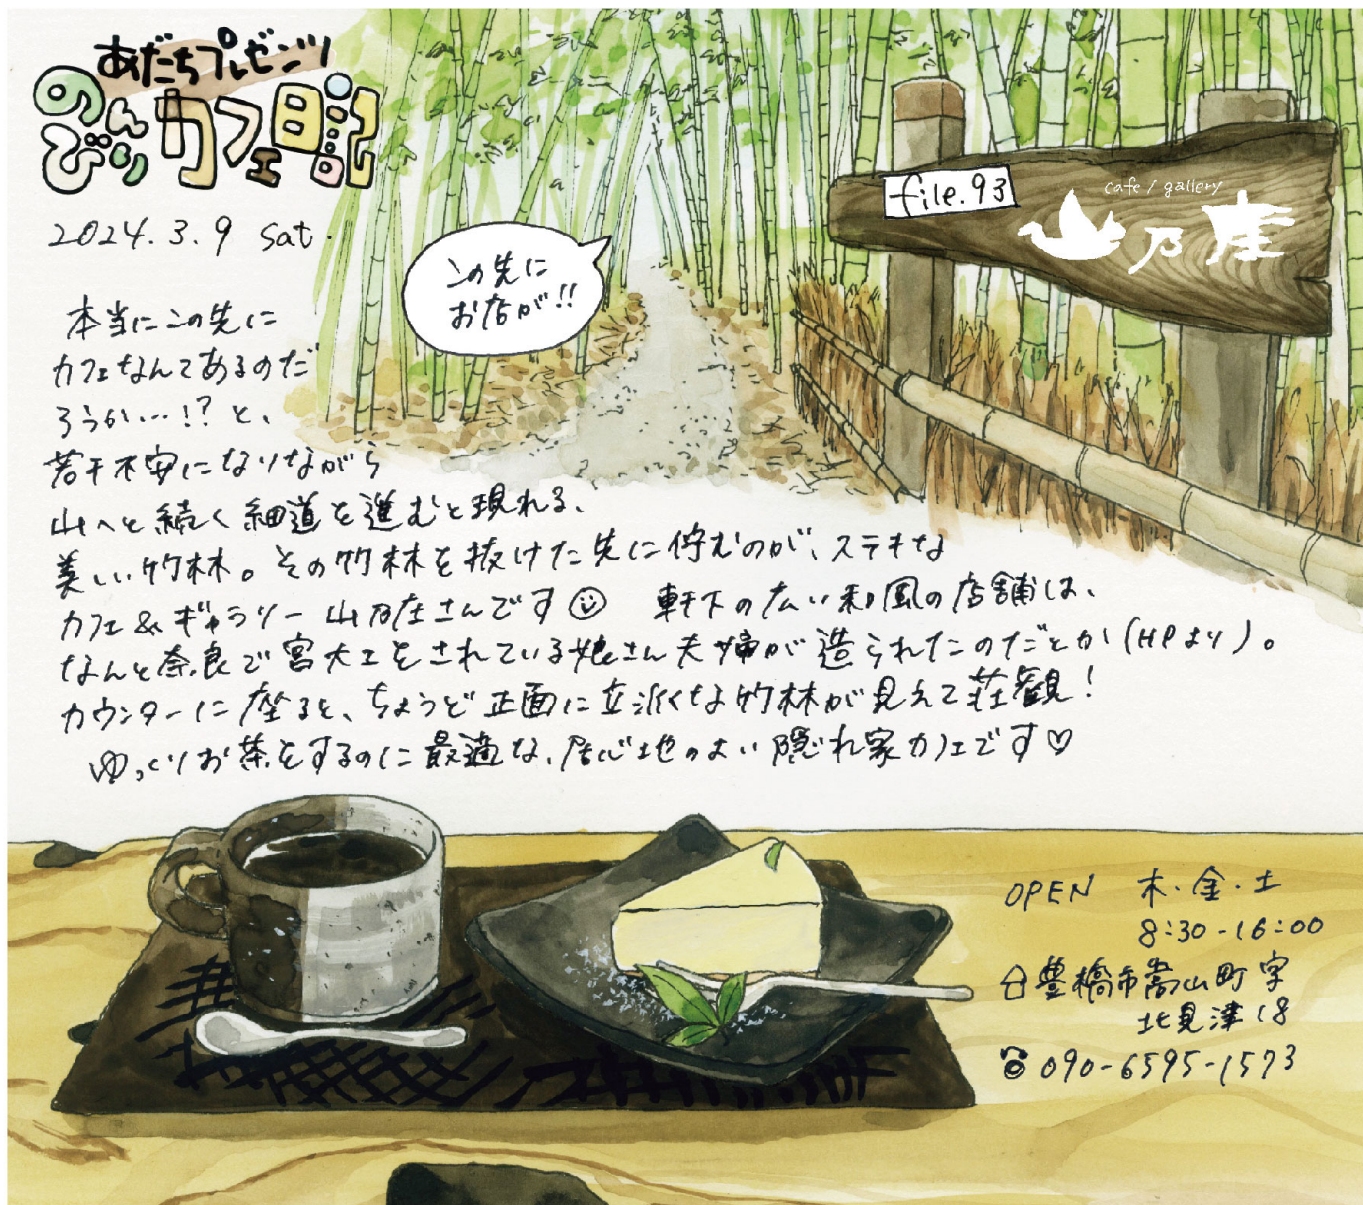 あだちプレゼンツ
のんびり カフェ日記
2024.3.9 sat.
file.93
cafe / gallery
山乃庄
この先に
お店が!!
本当にこの先に
カフェなんてあるのだ
ろうか…!? と、
若干不安になりながら
山へと続く細道を進むと現れる、
美しい竹林。その竹林を抜けた先に佇むのが、ステキな
カフェ&ギャラリー 山乃庄さんです 軒下の広い和風の店舗は、
なんと奈良で宮大工をされている娘さん夫婦が造られたのだとか(HPより)。
カウンターに座ると、ちょうど正面に立派な竹林が見えて荘観!
ゆっくりお茶をするのに最適な、居心地のよい隠れ家カフェです♡
OPEN 木・金・土
8:30-16:00
豊橋市嵩山町字
北見津18
☎ 090-6595-1573